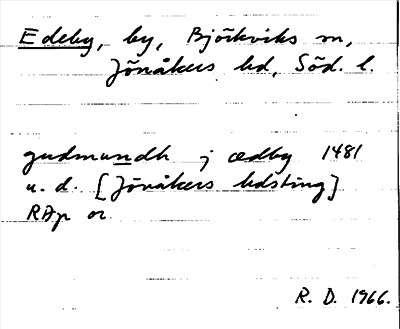 Edeby, by, Björkviks sn,
Jönåkers hd, Söd. l.
gudmundh j ædby 1481
u. d. [Jönåkers hdsting]
RAp or
R. D. 1966.